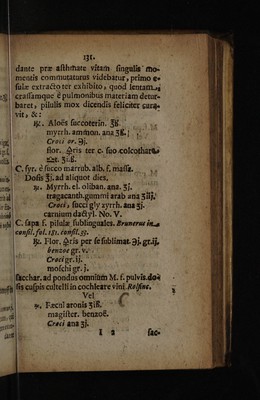 131.
dante præ asthmate vitam singulis mo-
mentis commutaturus videbatur, primo e-
sulæ extracto ter exhibito, quod lentam
crassamque è pulmonibus materiam detur-
baret, pilulis mox dicendis feliciter cura-
vit, & :
℞. Aloës succotrin. ʒß.
myrrh. ammon. ana ʒß.
Croci or. ℈j.
flor. ♀ris ter c. suo colcothare
C. syr. è succo marrub. alb. f. massa.
Dosis ʒj. ad aliquot dies.
℞. Myrrh. el. oliban. ana. ʒj.
tragacanth. gummi arab ana
Croci, succi glyzyrrh. ana ʒj.
carnium dactyl. No. V.
C. sapa f. pilulæ sublinguales. Brunerus in
consil. fol. 181. consil. 59.
℞. Flor. ♀ris per se sublimat. ℈j. gr. ij.
benzoe gr. v.
Croci gr. ij.
moschi gr. j.
sacchar. ad pondus omnium M. f. pulvis. do-
sis cuspis cultelli in cochleare vini Rolfinc.
Vel
℞. Fæcul aronis ʒiß.
magister. benzoë.
Croci ana ʒj.
I 2 sac-